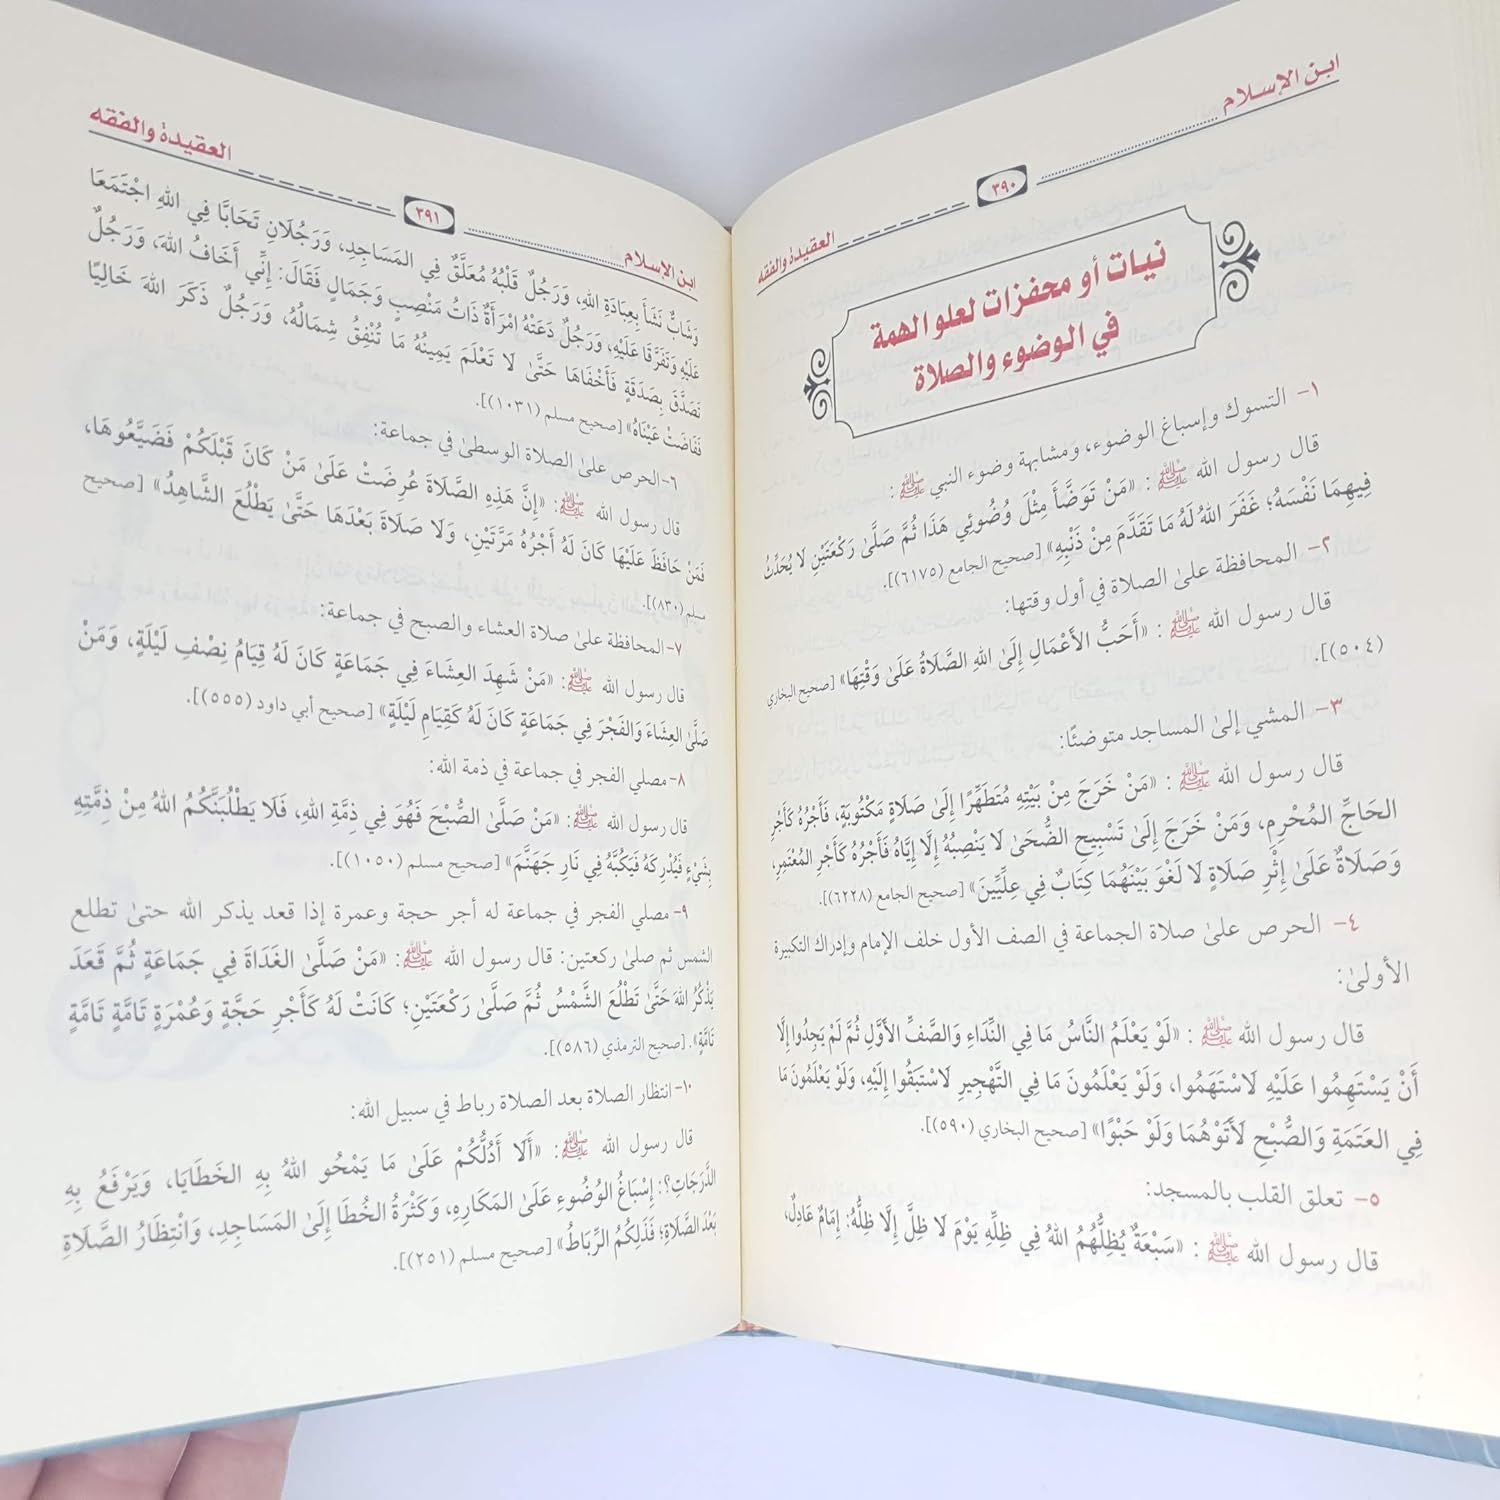 ابن الإسلام
٣٩٠
العقيدة والفقه
نيات أو محفزات لعلو الهمة
في الوضوء والصلاة
١- التسوك وإسباغ الوضوء، ومشابهة وضوء النبي ﷺ:
قال رسول الله ﷺ: «مَنْ تَوَضَّأَ مِثْلَ وُضُوئِي هَذَا ثُمَّ صَلَّىٰ رَكْعَتَيْنِ لَا يُحَدِّثُ
فِيهِمَا نَفْسَهُ؛ غَفَرَ اللهُ لَهُ مَا تَقَدَّمَ مِنْ ذَنْبِهِ» [صحيح الجامع (٦١٧٥)].
٢- المحافظة علىٰ الصلاة في أول وقتها:
قال رسول الله ﷺ: «أَحَبُّ الأَعْمَالِ إِلَىٰ اللهِ الصَّلَاةُ عَلَىٰ وَقْتِهَا» [صحيح البخاري
(٥٠٤)].
٣- المشي إلىٰ المساجد متوضئًا:
قال رسول الله ﷺ: «مَنْ خَرَجَ مِنْ بَيْتِهِ مُتَطَهِّرًا إِلَىٰ صَلَاةٍ مَكْتُوبَةٍ، فَأَجْرُهُ كَأَجْرِ
الحَاجِّ المُحْرِمِ، وَمَنْ خَرَجَ إِلَىٰ تَسْبِيحِ الضُّحَىٰ لَا يَنْصِبُهُ إِلَّا إِيَّاهُ فَأَجْرُهُ كَأَجْرِ المُعْتَمِرِ،
وَصَلَاةٌ عَلَىٰ إِثْرِ صَلَاةٍ لَا لَغْوَ بَيْنَهُمَا كِتَابٌ فِي عِلِّيِّينَ» [صحيح الجامع (٦٢٢٨)].
٤- الحرص علىٰ صلاة الجماعة في الصف الأول خلف الإمام وإدراك التكبيرة
الأولىٰ:
قال رسول الله ﷺ: «لَوْ يَعْلَمُ النَّاسُ مَا فِي النِّدَاءِ وَالصَّفِّ الأَوَّلِ ثُمَّ لَمْ يَجِدُوا إِلَّا
أَنْ يَسْتَهِمُوا عَلَيْهِ لَاسْتَهَمُوا، وَلَوْ يَعْلَمُونَ مَا فِي التَّهْجِيرِ لَاسْتَبَقُوا إِلَيْهِ، وَلَوْ يَعْلَمُونَ مَا
فِي العَتَمَةِ وَالصُّبْحِ لَأَتَوْهُمَا وَلَوْ حَبْوًا» [صحيح البخاري (٥٩٠)].
٥- تعلق القلب بالمسجد:
قال رسول الله ﷺ: «سَبْعَةٌ يُظِلُّهُمُ اللهُ فِي ظِلِّهِ يَوْمَ لَا ظِلَّ إِلَّا ظِلُّهُ: إِمَامٌ عَادِلٌ،
ابن الإسلام
٣٩١
العقيدة والفقه
وَشَابٌّ نَشَأَ بِعِبَادَةِ اللهِ، وَرَجُلٌ قَلْبُهُ مُعَلَّقٌ فِي المَسَاجِدِ، وَرَجُلَانِ تَحَابَّا فِي اللهِ اجْتَمَعَا
عَلَيْهِ وَتَفَرَّقَا عَلَيْهِ، وَرَجُلٌ دَعَتْهُ امْرَأَةٌ ذَاتُ مَنْصِبٍ وَجَمَالٍ فَقَالَ: إِنِّي أَخَافُ اللهَ، وَرَجُلٌ
تَصَدَّقَ بِصَدَقَةٍ فَأَخْفَاهَا حَتَّىٰ لَا تَعْلَمَ يَمِينُهُ مَا تُنْفِقُ شِمَالُهُ، وَرَجُلٌ ذَكَرَ اللهَ خَالِيًا
فَفَاضَتْ عَيْنَاهُ» [صحيح مسلم (١٠٣١)].
٦- الحرص علىٰ الصلاة الوسطىٰ في جماعة:
قال رسول الله ﷺ: «إِنَّ هَذِهِ الصَّلَاةَ عُرِضَتْ عَلَىٰ مَنْ كَانَ قَبْلَكُمْ فَضَيَّعُوهَا،
فَمَنْ حَافَظَ عَلَيْهَا كَانَ لَهُ أَجْرُهُ مَرَّتَيْنِ، وَلَا صَلَاةَ بَعْدَهَا حَتَّىٰ يَطْلُعَ الشَّاهِدُ» [صحيح
مسلم (٨٣٠)].
٧- المحافظة علىٰ صلاة العشاء والصبح في جماعة:
قال رسول الله ﷺ: «مَنْ شَهِدَ العِشَاءَ فِي جَمَاعَةٍ كَانَ لَهُ قِيَامُ نِصْفِ لَيْلَةٍ، وَمَنْ
صَلَّىٰ العِشَاءَ وَالفَجْرَ فِي جَمَاعَةٍ كَانَ لَهُ كَقِيَامِ لَيْلَةٍ» [صحيح أبي داود (٥٥٥)].
٨- مصلي الفجر في جماعة في ذمة الله:
قال رسول الله ﷺ: «مَنْ صَلَّىٰ الصُّبْحَ فَهُوَ فِي ذِمَّةِ اللهِ، فَلَا يَطْلُبَنَّكُمُ اللهُ مِنْ ذِمَّتِهِ
بِشَيْءٍ فَيُدْرِكَهُ فَيَكُبَّهُ فِي نَارِ جَهَنَّمَ» [صحيح مسلم (١٠٥٠)].
٩- مصلي الفجر في جماعة له أجر حجة وعمرة إذا قعد يذكر الله حتىٰ تطلع
الشمس ثم صلىٰ ركعتين: قال رسول الله ﷺ: «مَنْ صَلَّىٰ الغَدَاةَ فِي جَمَاعَةٍ ثُمَّ قَعَدَ
يَذْكُرُ اللهَ حَتَّىٰ تَطْلُعَ الشَّمْسُ ثُمَّ صَلَّىٰ رَكْعَتَيْنِ؛ كَانَتْ لَهُ كَأَجْرِ حَجَّةٍ وَعُمْرَةٍ تَامَّةٍ تَامَّةٍ
تَامَّةٍ». [صحيح الترمذي (٥٨٦)].
١٠- انتظار الصلاة بعد الصلاة رباط في سبيل الله:
قال رسول الله ﷺ: «أَلَا أَدُلُّكُمْ عَلَىٰ مَا يَمْحُو اللهُ بِهِ الخَطَايَا، وَيَرْفَعُ بِهِ
الدَّرَجَاتِ؟: إِسْبَاغُ الوُضُوءِ عَلَىٰ المَكَارِهِ، وَكَثْرَةُ الخُطَا إِلَىٰ المَسَاجِدِ، وَانْتِظَارُ الصَّلَاةِ
بَعْدَ الصَّلَاةِ؛ فَذَلِكُمُ الرِّبَاطُ» [صحيح مسلم (٢٥١)].